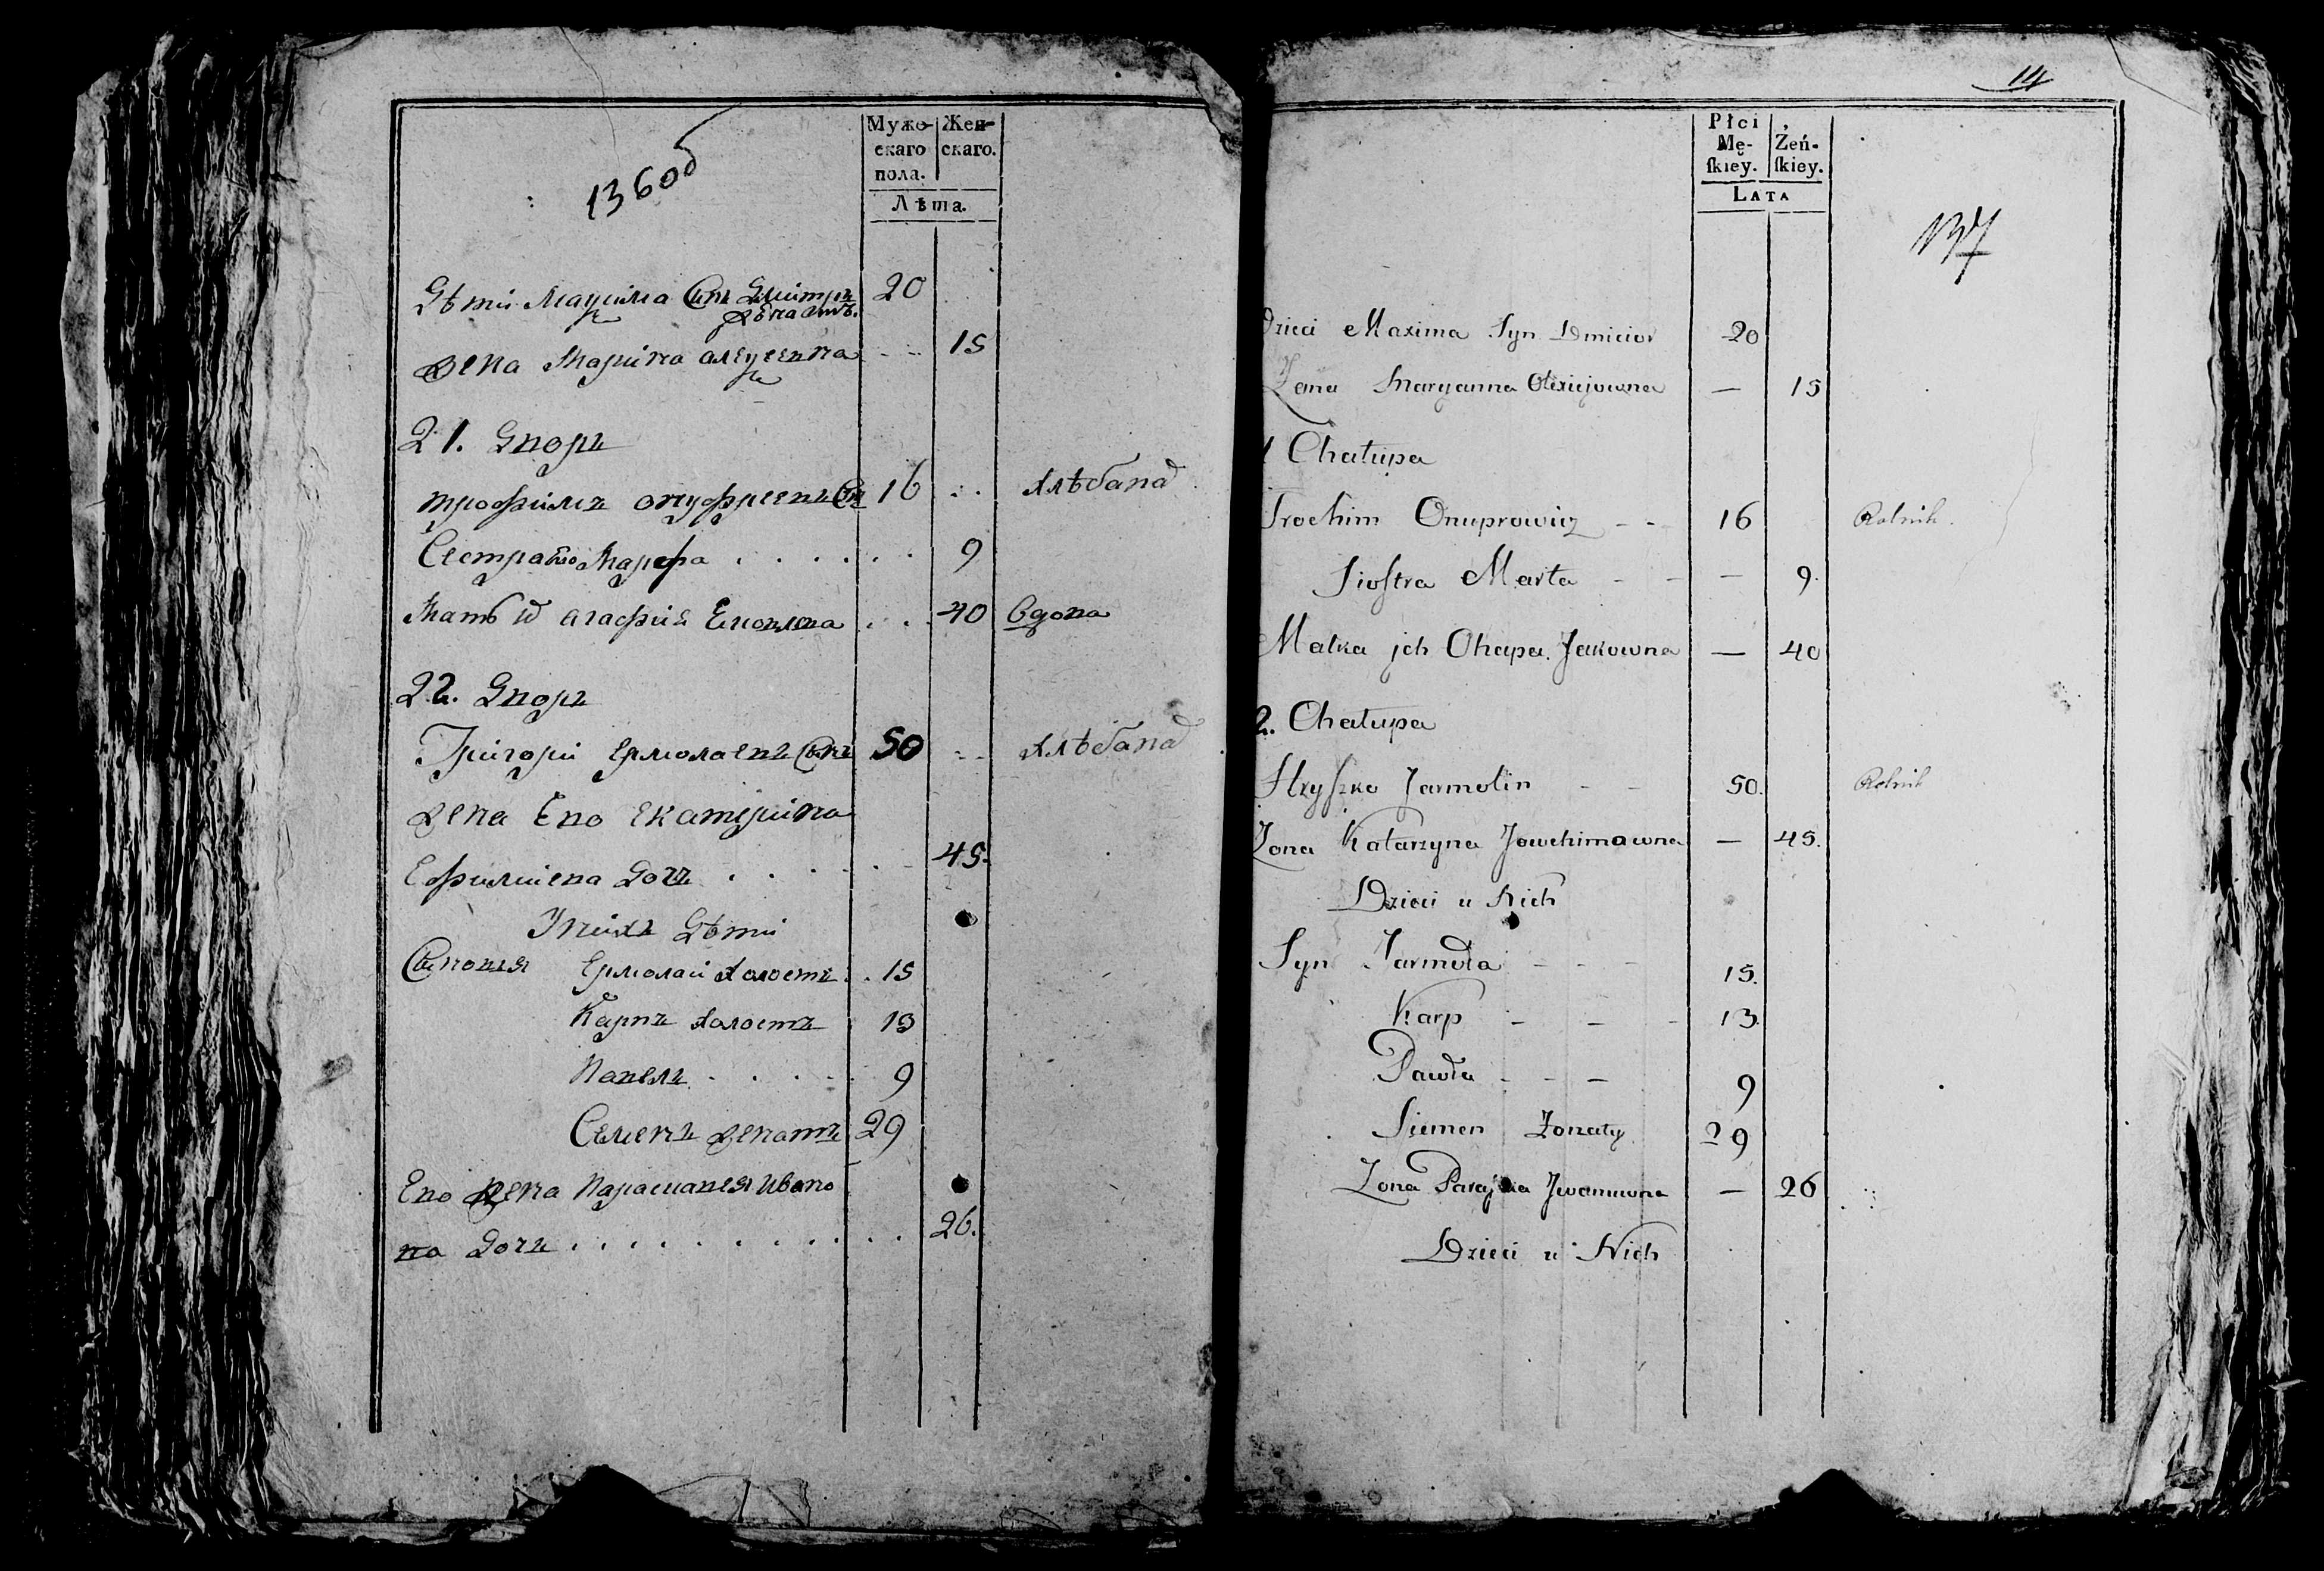 136об
Мужескаго пола.
Женскаго.
Лѣта.
Дѣти Мацима Сынъ Дмитръ 20
женатъ.
жена Марина алеуеевна 15
21. Дворъ
трофимъ онуфриевъ Сы 16 хлѣбапа
Сестра ево Марфа 9
Мать агафия 40 Вдова
22. Дворъ
Григори ермолаевъ Сынъ 50 хлѣбапа
жена Ево екатерина
Ефимиева Дочь 45.
У нихъ Дѣти
Сыновья Ермолай холостъ 15
Карпъ холостъ 13
Павелъ 9
Семенъ женатъ 29
Ево жена Параскавея Ивано
ва Дочь 26.
14
Płci Męſkiey.
Żeńſkiey.
LATA
137
Dzieci Maxima Syn Dmicior 20
Zona Maryanna Olexiejowna — 15
1 Chałupa
Trochim Onuprowicz - - 16 Rolnik.
Siostra Marta - - — 9.
Matka jch Ohapa Jakowna — 40
2. Chałupa
Hryszko Jarmolin - - 50. Rolnik
Zona Katarzyna Jowchimowna — 45.
Dzieci u Nich
Syn Jarmoła - - - 15.
Karp - - - 13.
Pawła - - - 9
Siemen Zonaty 29
Zona Paraska Jwanowna — 26
Dzieci u Nich